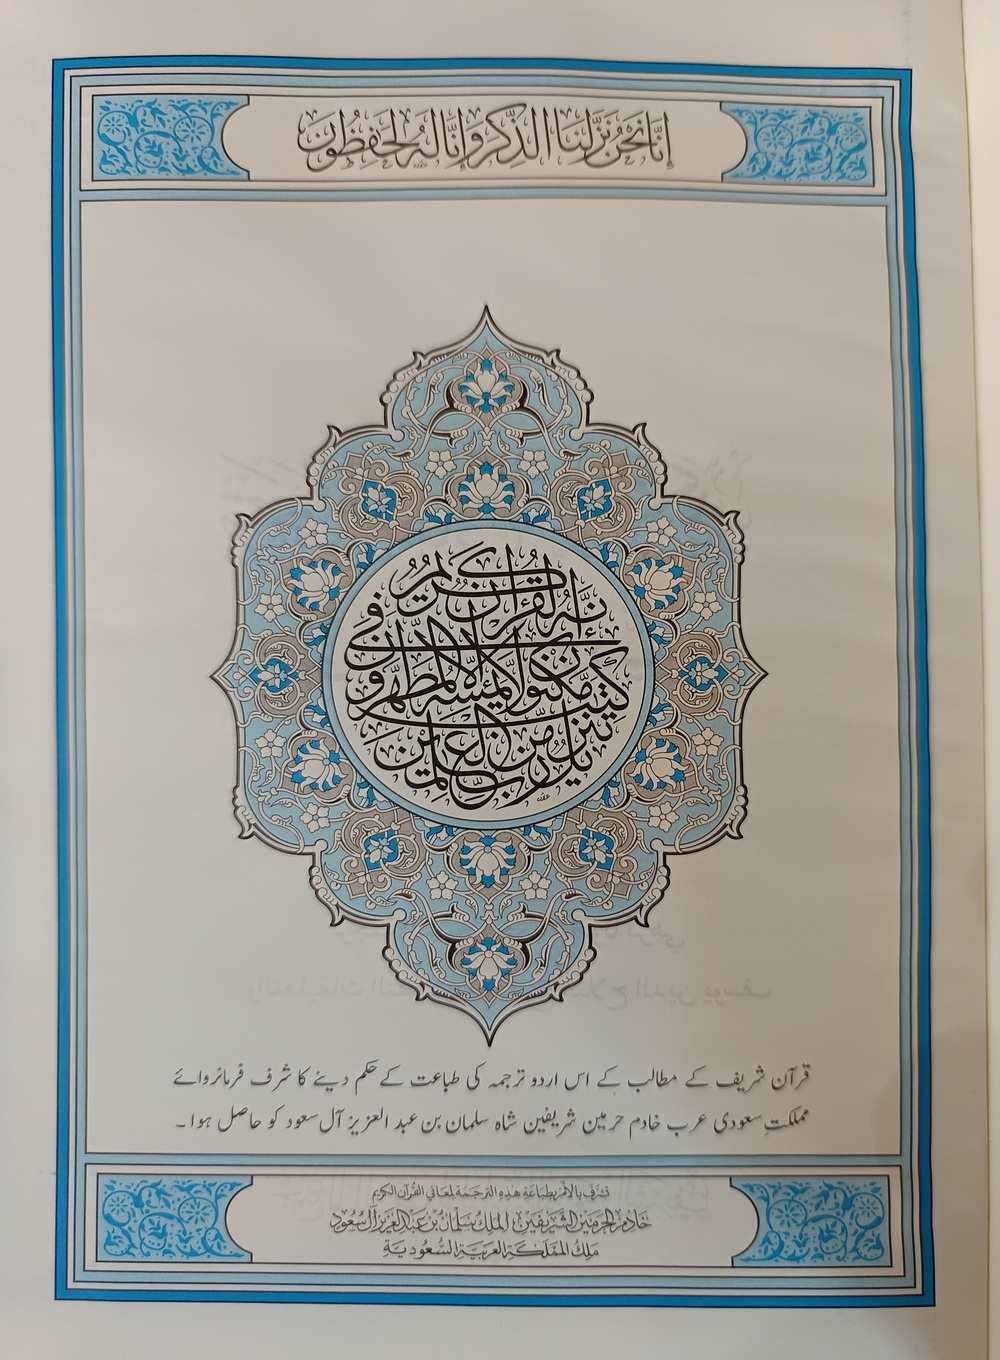 إنا نحن نزلنا الذكر وإنا له لحفظون
إنه لقرآن كريم
في كتب مكنون لا يمسه إلا المطهرون
تنزيل من رب العلمين
قرآن شریف کے مطالب کے اس اردو ترجمہ کی طباعت کے حکم دینے کا شرف فرمانروائے
مملکتِ سعودی عرب خادم حرمین شریفین شاہ سلمان بن عبد العزیز آل سعود کو حاصل ہوا ۔
تشرف بالأمر بطباعة هذه الترجمة لمعاني القرآن الكريم
خادم الحرمين الشريفين الملك سلمان بن عبد العزيز آل سعود
ملك المملكة العربية السعودية